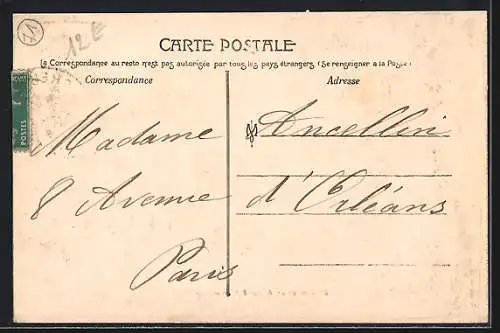 11
12 €
CARTE POSTALE
La Correspondance au recto n'est pas autorisée par tous les pays étrangers (Se renseigner à la Poste)
Correspondance
Adresse
POSTES
Madame Ancellin
8 Avenue d'Orléans
Paris